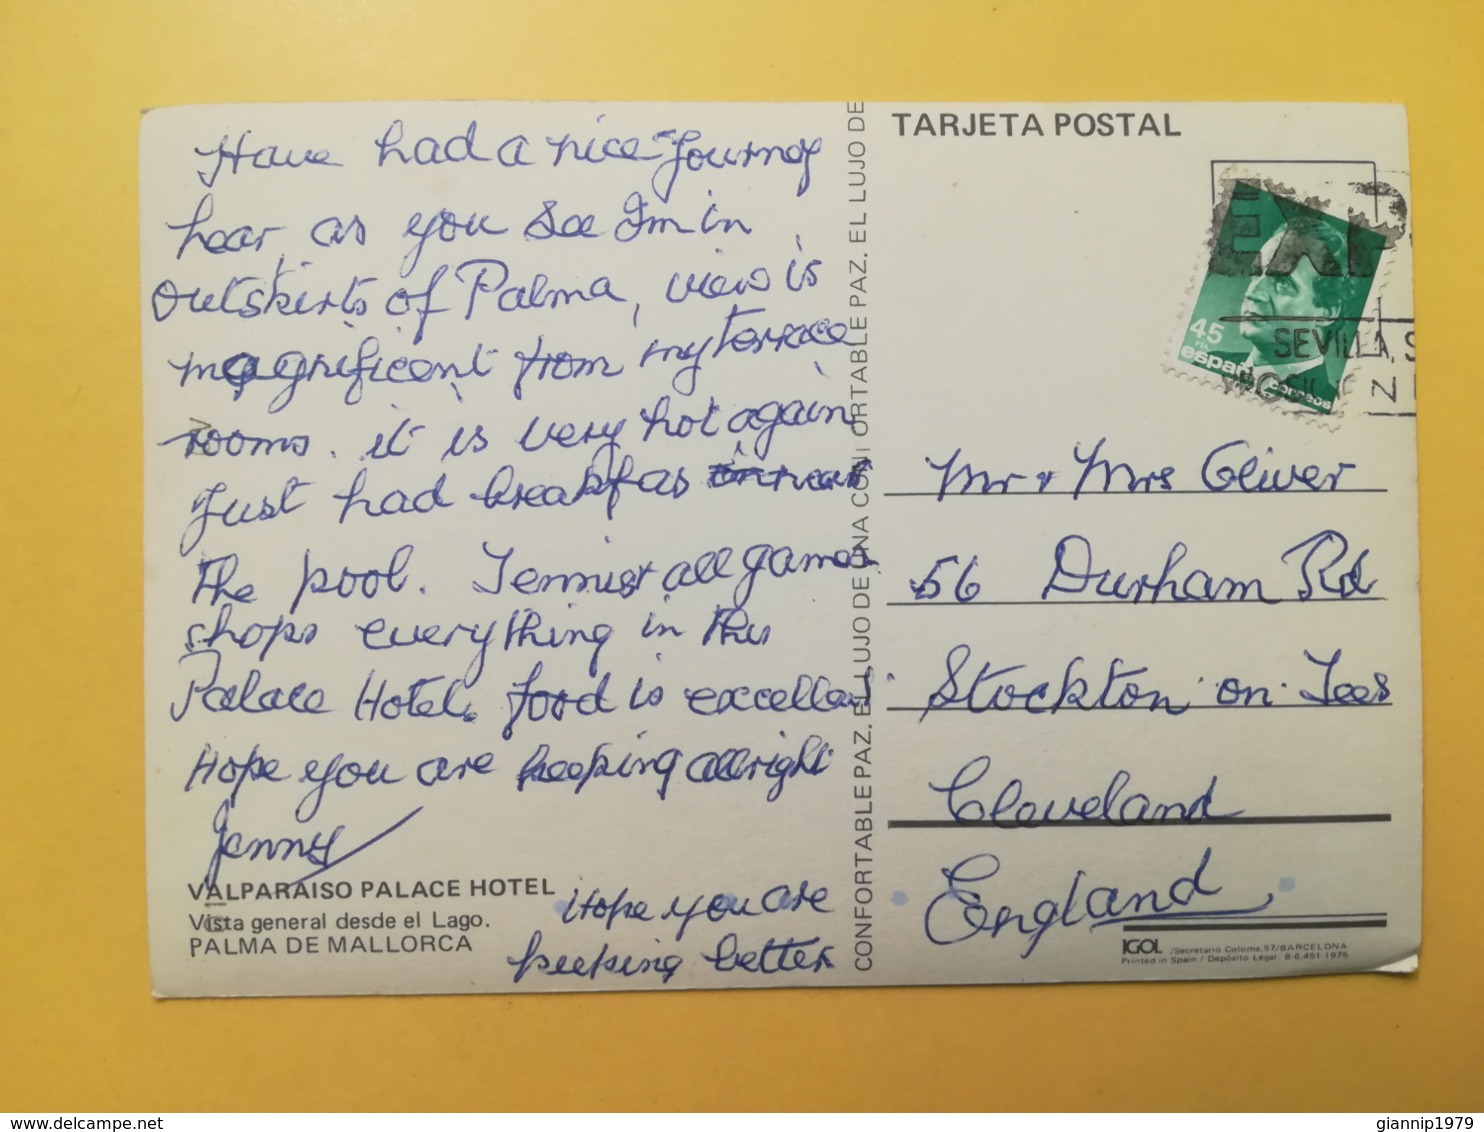 Have had a nice Journey
hear, as you see I'm in
outskirts of Palma, view is
magnificent from my terrace
rooms. it is very hot again
Just had breakfas near
the pool. Tennis all games
shops everything in this
Palace Hotel. food is excellent
Hope you are keeping allright
Jenny
Hope you are
keeping better
VALPARAISO PALACE HOTEL
Vista general desde el Lago.
PALMA DE MALLORCA
CONFORTABLE PAZ. EL LUJO DE UNA CONFORTABLE PAZ. EL LUJO DE
TARJETA POSTAL
EXP
SEVILLA, S
45
PTA
españa correos
Mr & Mrs Oliver
56 Durham Rd
Stockton on Tees
Cleveland
England
IGOL /Secretario Coloma, 57/BARCELONA
Printed in Spain / Depósito Legal B-6.451-1975
giannip1979